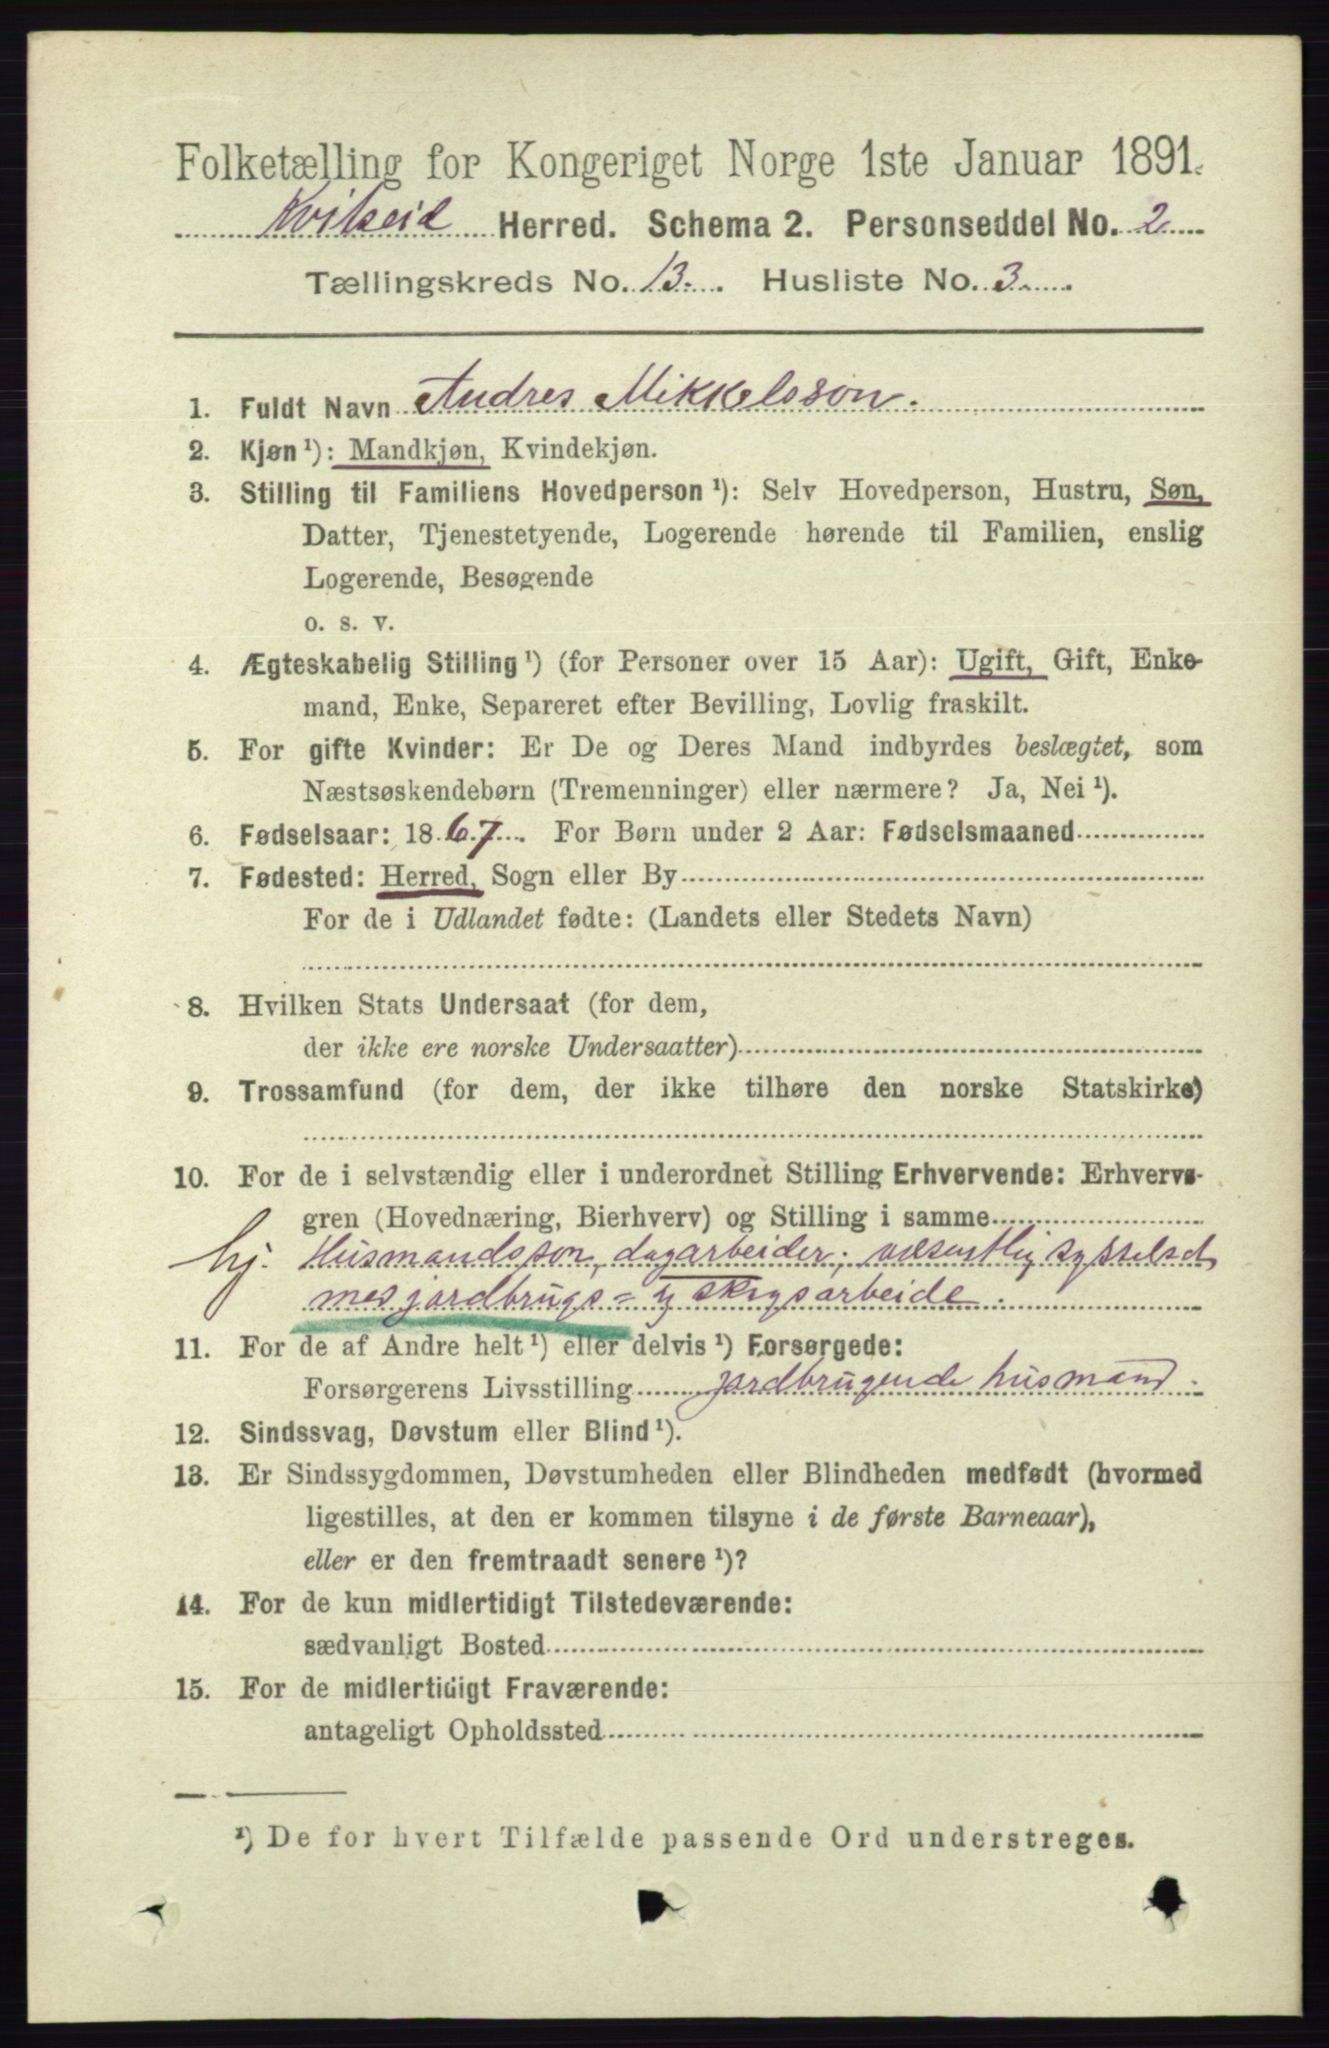 Folketælling for Kongeriget Norge 1ste Januar 1891.
Kviteseid Herred. Schema 2. Personseddel No. 2
Tællingskreds No. 13. Husliste No. 3
1. Fuldt Navn Andres Mikkelsson.
2. Kjøn ¹): Mandkjøn, Kvindekjøn.
3. Stilling til Familiens Hovedperson ¹): Selv Hovedperson, Hustru, Søn,
Datter, Tjenestetyende, Logerende hørende til Familien, enslig
Logerende, Besøgende
o. s. v.
4. Ægteskabelig Stilling ¹) (for Personer over 15 Aar): Ugift, Gift, Enke-
mand, Enke, Separeret efter Bevilling, Lovlig fraskilt.
5. For gifte Kvinder: Er De og Deres Mand indbyrdes beslægtet, som
Næstsøskendebørn (Tremenninger) eller nærmere? Ja, Nei ¹).
6. Fødselsaar: 1867. For Børn under 2 Aar: Fødselsmaaned
7. Fødested: Herred, Sogn eller By
For de i Udlandet fødte: (Landets eller Stedets Navn)
8. Hvilken Stats Undersaat (for dem,
der ikke ere norske Undersaatter)
9. Trossamfund (for dem, der ikke tilhøre den norske Statskirke)
10. For de i selvstændig eller i underordnet Stilling Erhvervende: Erhvervs-
gren (Hovednæring, Bierhverv) og Stilling i samme
hj. Husmandsson, dagarbeider, væsentlig sysselsat
med jordbrugs= og skogsarbeide.
11. For de af Andre helt ¹) eller delvis ¹) Forsørgede:
Forsørgerens Livsstilling jordbrugende husmand.
12. Sindssvag, Døvstum eller Blind ¹).
13. Er Sindssygdommen, Døvstumheden eller Blindheden medfødt (hvormed
ligestilles, at den er kommen tilsyne i de første Barneaar),
eller er den fremtraadt senere ¹)?
14. For de kun midlertidigt Tilstedeværende:
sædvanligt Bosted
15. For de midlertidigt Fraværende:
antageligt Opholdssted
¹) De for hvert Tilfælde passende Ord understreges.